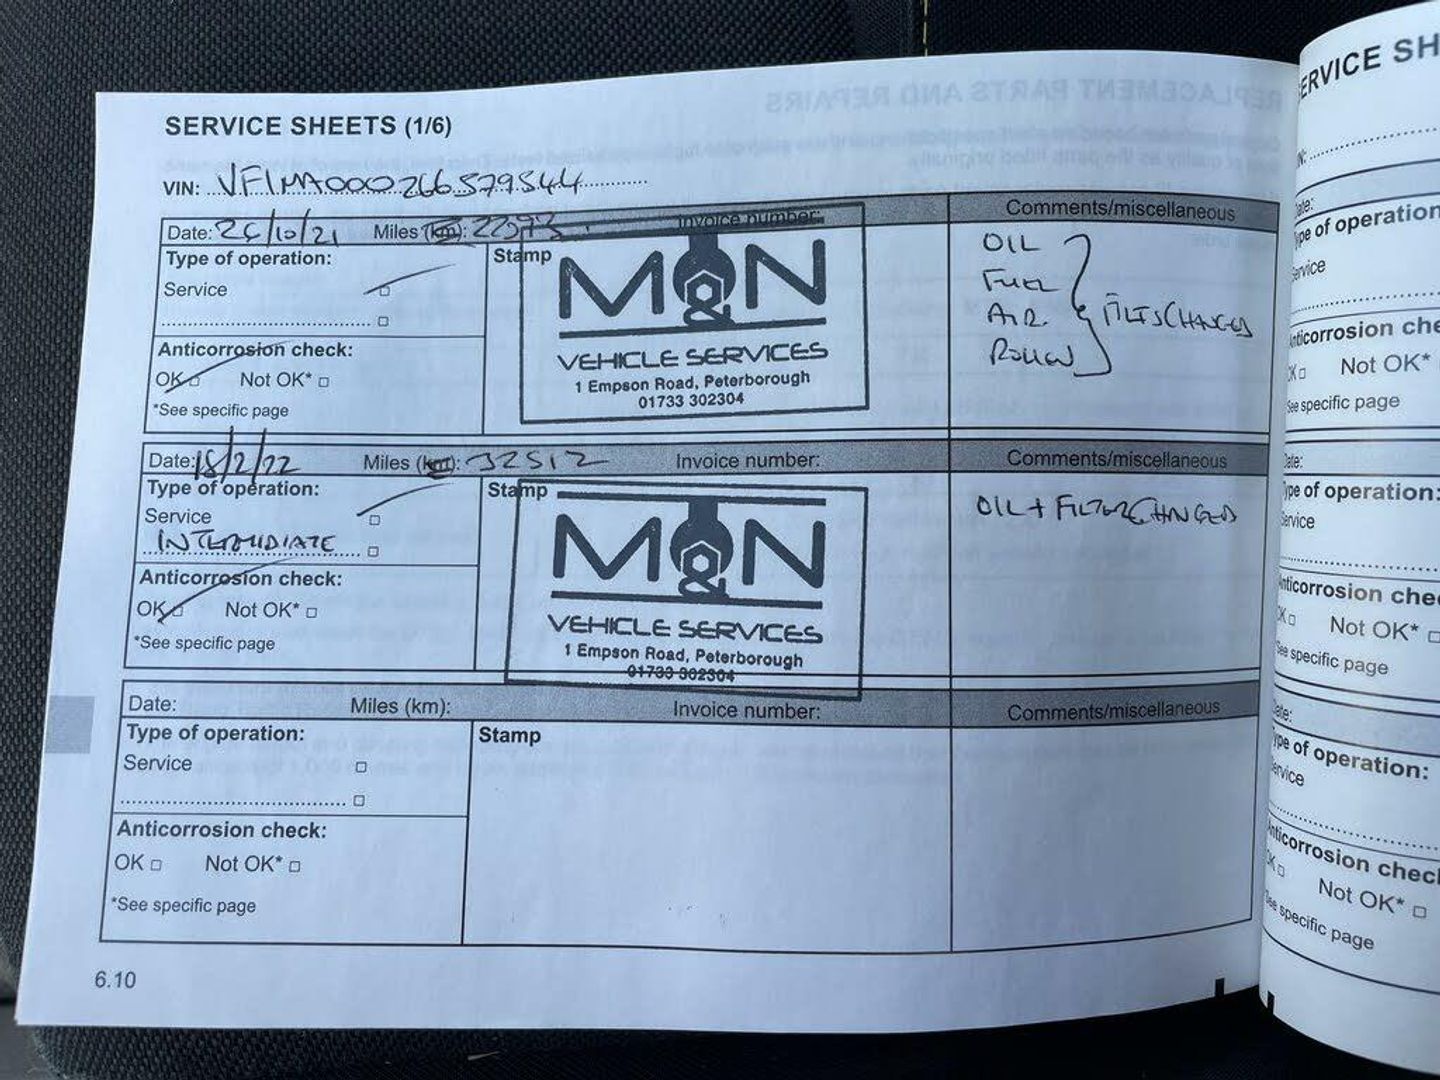 SERVICE SHEETS (1/6)
VIN: VF1MA000266579544
Date: 26/10/21 Miles (km): Invoice number: Comments/miscellaneous
Type of operation:
Service
Stamp
M&N
VEHICLE SERVICES
1 Empson Road, Peterborough
01733 302304
OIL
FUEL
AIR
POLLEN
Anticorrosion check:
OK Not OK*
*See specific page
Date: 18/2/22 Miles (km): 32512 Invoice number: Comments/miscellaneous
Type of operation:
Service
INTERMIDIATE
Stamp
M&N
VEHICLE SERVICES
1 Empson Road, Peterborough
01733 302304
OIL + FILTER CHANGED
Anticorrosion check:
OK Not OK*
*See specific page
Date: Miles (km): Invoice number: Comments/miscellaneous
Type of operation:
Service
Stamp
Anticorrosion check:
OK Not OK*
*See specific page
6.10
ERVICE SH
Type of operation
ervice
nticorrosion che
OK Not OK*
See specific page
Date:
ype of operation:
ervice
nticorrosion chec
OK Not OK*
See specific page
Date:
ype of operation:
ervice
nticorrosion check
OK Not OK*
See specific page
REPLACEMENT PARTS AND REPAIRS